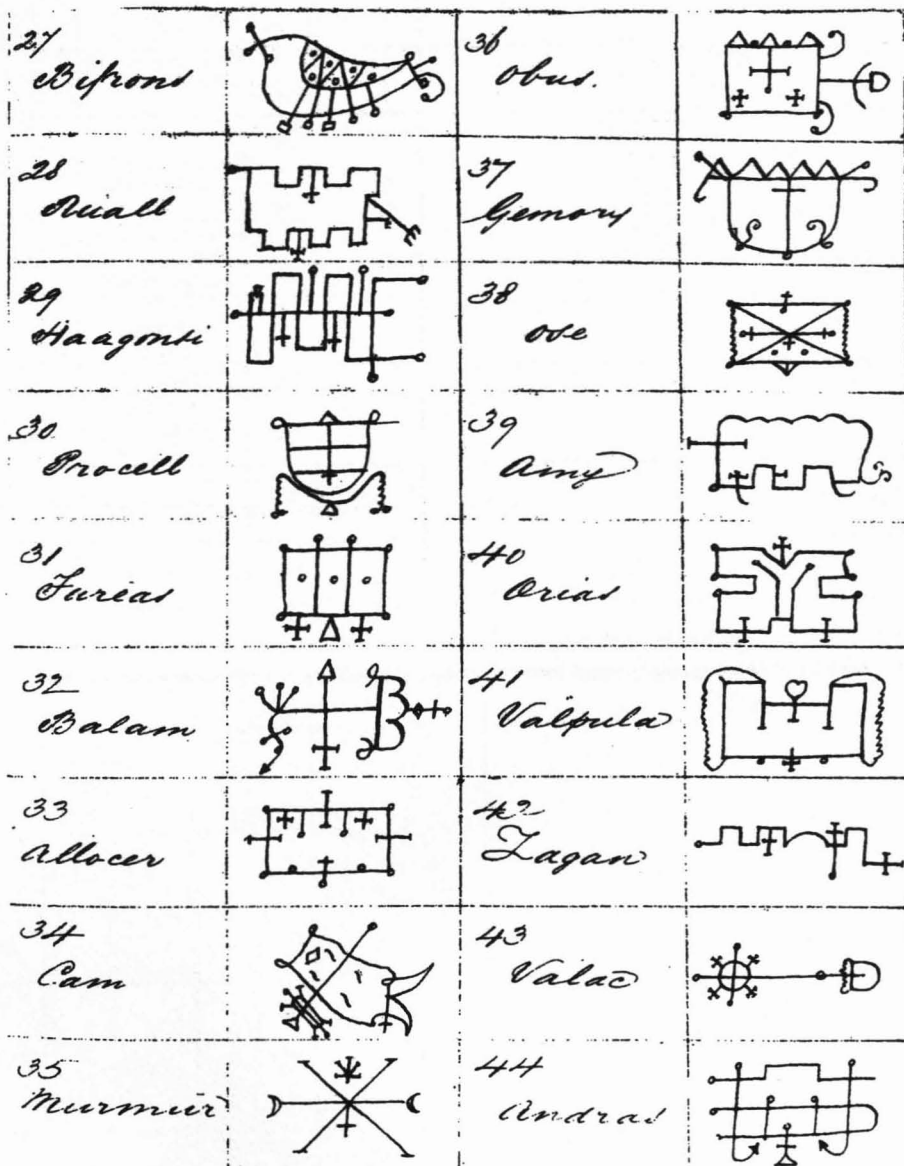 27
Bifrons
28
Ruall
29
Haagonti
30
Procell
31
Furcas
32
Balam
33
Allocer
34
Cam
35
Murmur
36
Obus.
37
Gemory
38
Ose
39
Amy
40
Orias
41
Valpula
42
Zagan
43
Valac
44
Andras